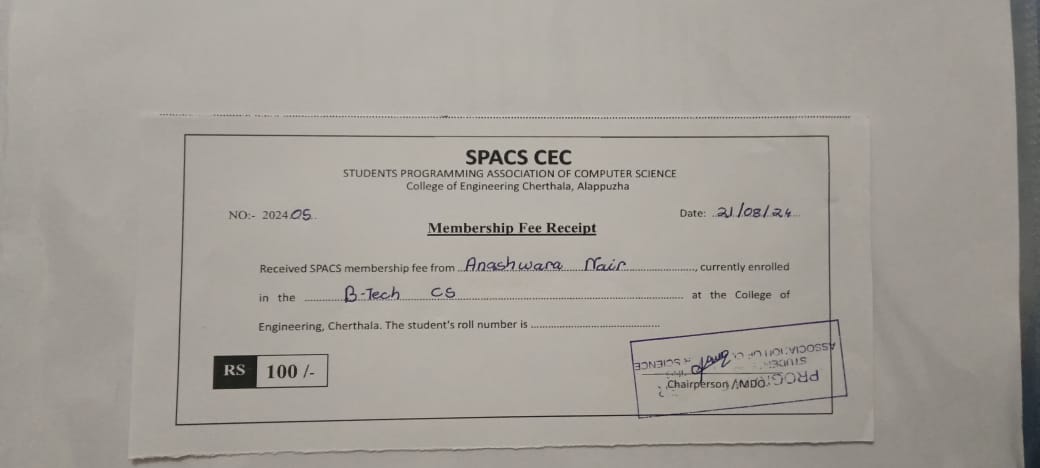 SPACS CEC
STUDENTS PROGRAMMING ASSOCIATION OF COMPUTER SCIENCE
College of Engineering Cherthala, Alappuzha
NO:- 2024 05 Date: 21/08/24
Membership Fee Receipt
Received SPACS membership fee from Anashwara Nair, currently enrolled
in the B-Tech CS at the College of
Engineering, Cherthala. The student's roll number is
RS 100 /-
Chairperson /MDO